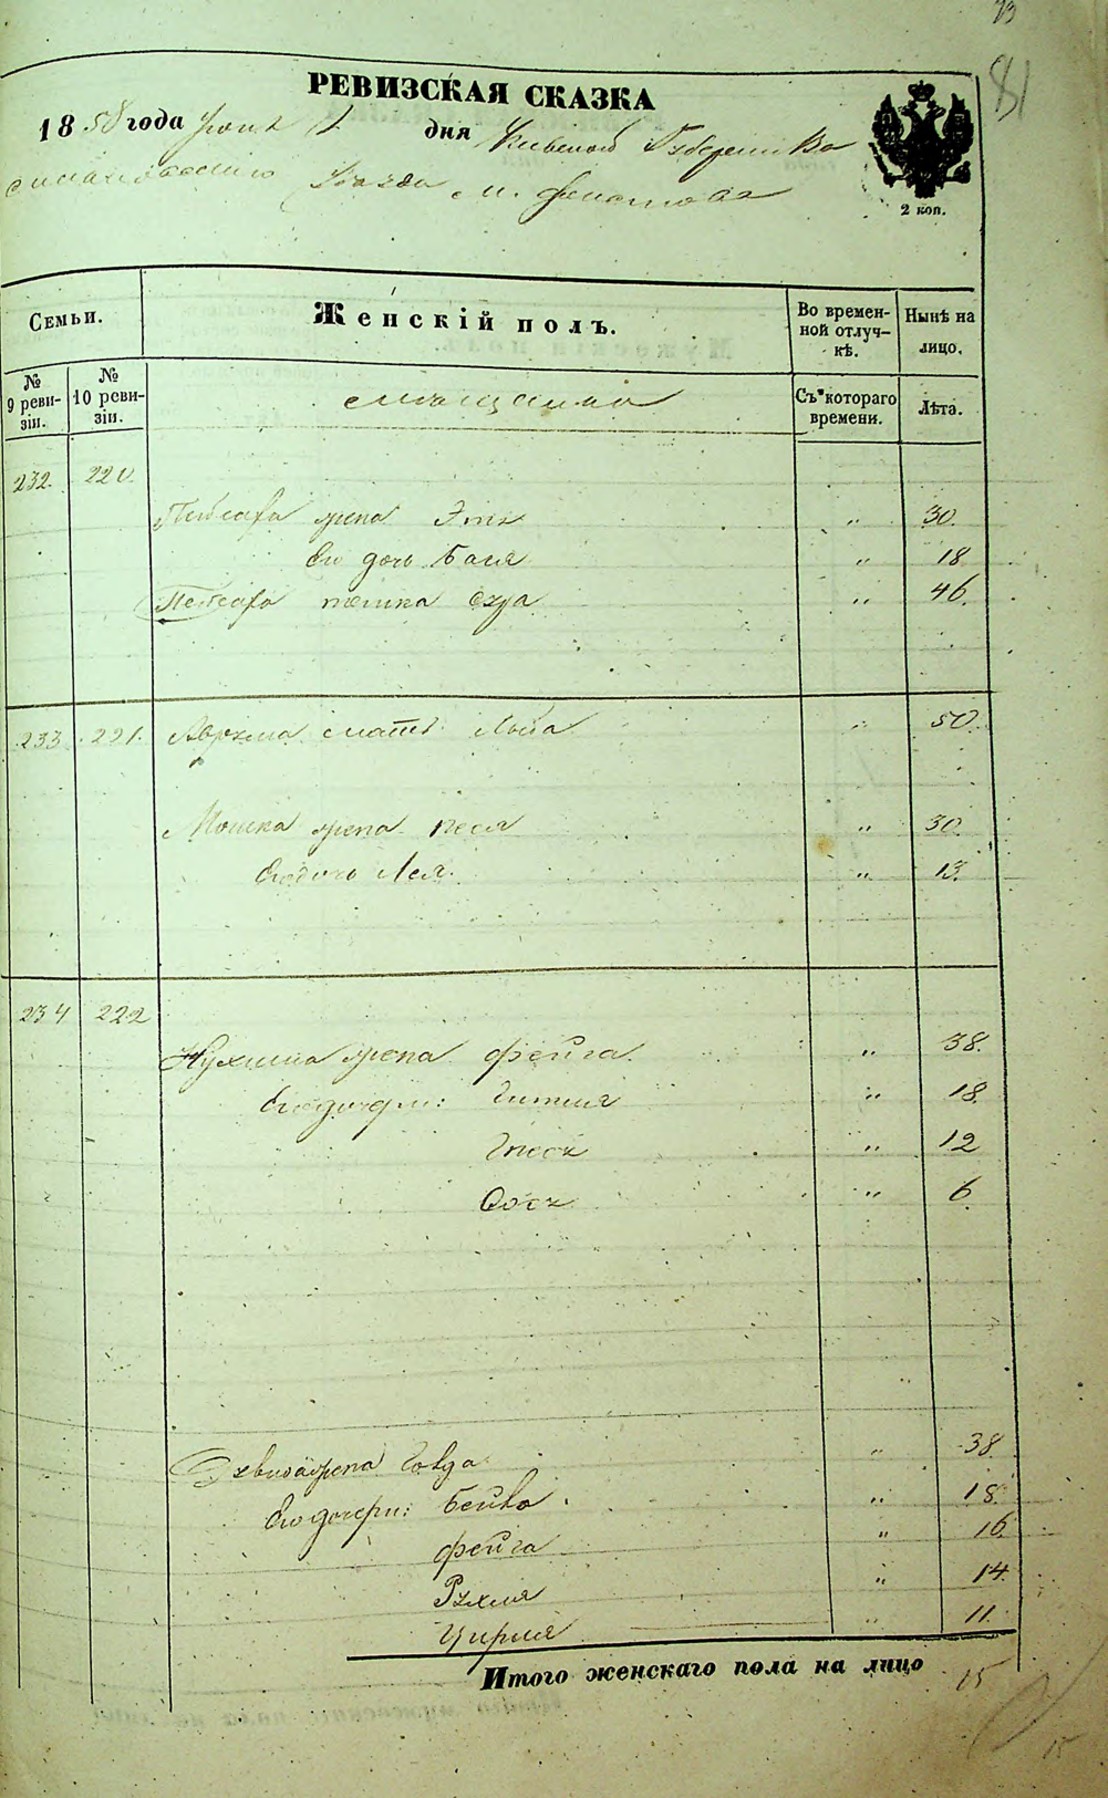 73
81
РЕВИЗСКАЯ СКАЗКА
1858 года Юня 1 дня Кіевской Губерніи Ва
сильковскаго Уезда м. Фастова
2 коп.
Семьи.
Женскій полъ.
Во времен-
ной отлуч-
кѣ.
Нынѣ на
лицо.
№
9 реви-
зіи.
№
10 реви-
зіи.
мещанка
Съ котораго
времени.
Лѣта.
232. 220.
Пейсаха жена Этя " 30.
Его дочь Бася " 18
Пейсаха тетка Сура " 46.
233 221. Аврума мать " 50.
Мошка жена Песя " 30.
Его дочь Лея. " 13.
234 222
Нухима жена Фейга " 38.
Его дочери: Гитля " 18.
" 12
Сося " 6.
жена Говда " 38.
Его дочери: Бейла " 18.
Фейга " 16.
Рухля " 14.
Цирля " 11.
Итого женскаго пола на лицо 15
15